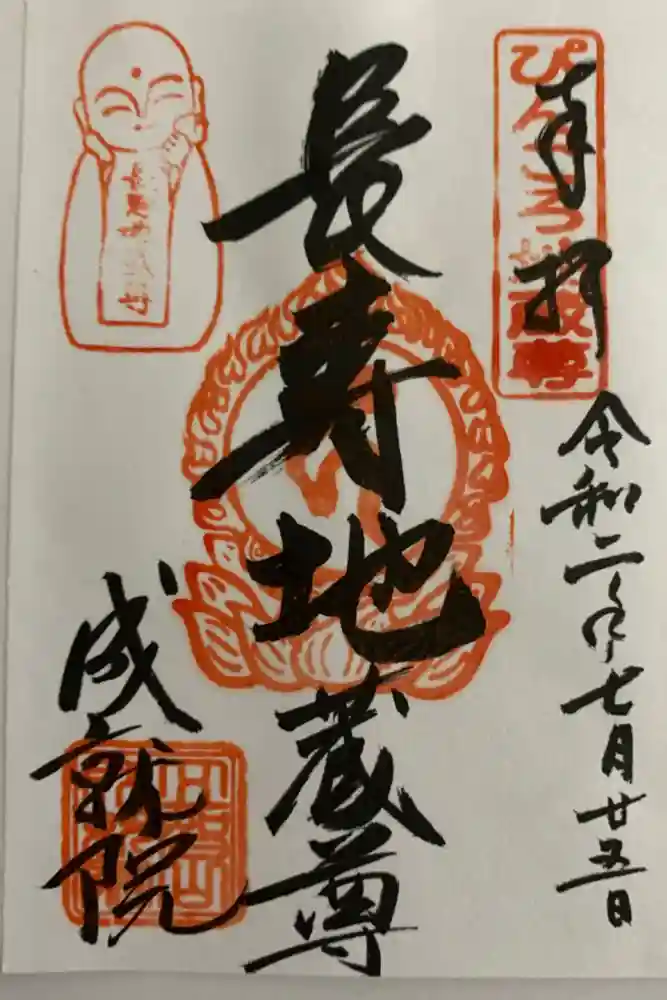 奉拝
ぴんころ地蔵尊
令和二年七月廿五日
長寿地蔵尊
成就院